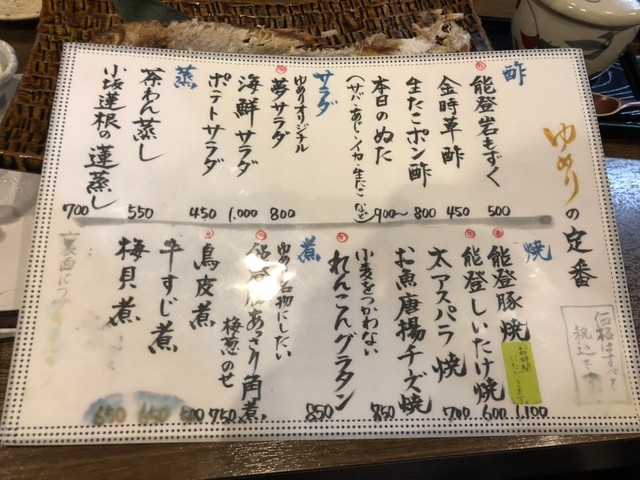 ゆめりの定番
価格はすべて
税込です
酢
能登岩もずく 500
金時草酢 450
生たこポン酢 800
本日のぬた 900〜
(サバ・あじ・イカ・生たこなど)
サラダ
ゆめりオリジナル
夢サラダ 800
海鮮サラダ 1,000
ポテトサラダ 450
蒸
茶わん蒸し 550
小坂蓮根の蓮蒸し 700
焼
能登豚焼 1,100
お時間
能登しいたけ焼 600
太アスパラ焼 700
お魚唐揚チーズ焼 850
小麦をつかわない
れんこんグラタン 850
煮
ゆめり名物にしたい
あさり角煮 750
梅葱のせ
鳥皮煮 500
牛すじ煮 650
梅貝煮 650
裏面につづく